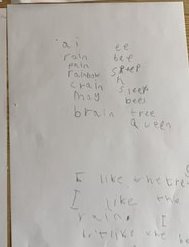 ai ee
rain bee
pain sheep
rainbow h
crain sleep
may bees
brain tree
queen
I like the tree
I like the
rain.
I like the